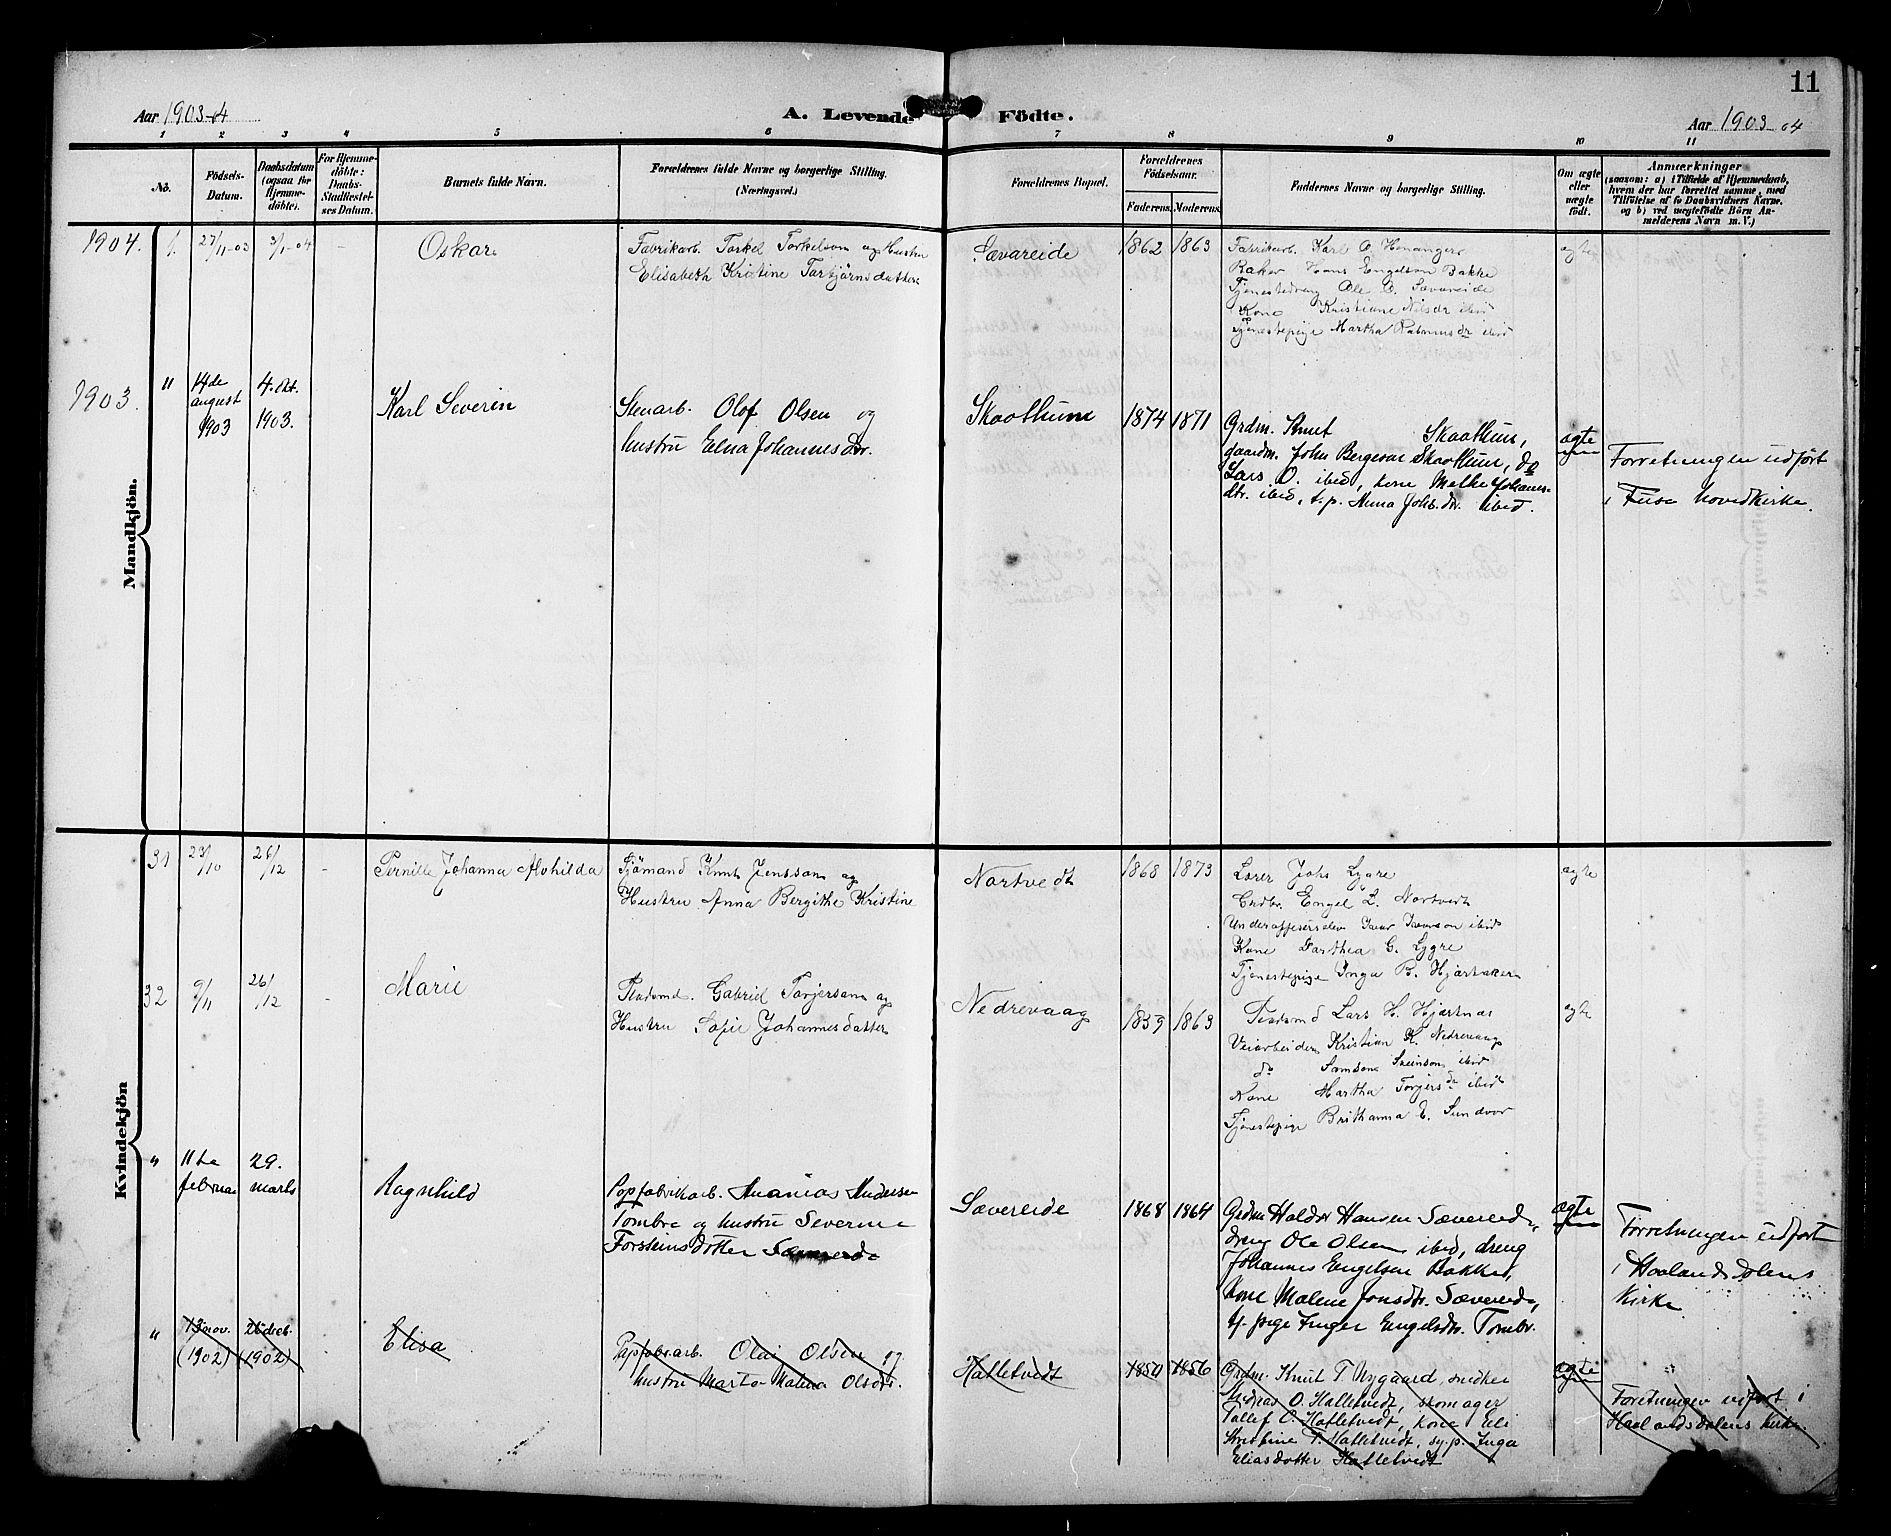 11
Aar 1903-04
A. Levende Födte.
Aar 1903-04
1 2 3 4 5 6 7 8 9 10 11
No.
Födsels-Datum.
Daabsdatum (ogsaa for Hjemme-döbte).
For Hjemme-döbte: Daabs-Stadfæstel-ses Datum.
Barnets fulde Navn.
Forældrenes fulde Navne og borgerlige Stilling.
(Næringsvei.)
Forældrenes Bopæl.
Forældrenes Födselsaar.
Faderens. Moderens.
Faddernes Navne og borgerlige Stilling.
Om ægte eller uægte födt.
Anmærkninger
(saasom: a) i Tilfælde af Hjemmedaab,
hvem der har forrettet samme, med
Tilföielse af to Daabsvidners Navne.
og b) ved uægtefödte Börn An-
melderens Navn m. V.)
Mandkjön.
1904. 1. 27/11-03 3/1-04 - Oskar
Fabrikarb. Torkel Torkelsen og Hustru
Elisabeth Kristine Torbjörnsdatter
Sævareide 1862 1863
Fabrikarb. Karl O. Honanger
Baker Hans Engelsen Bakke
Tjenestedreng Ole O. Sævareide
Kone Kristiane Nilsdr ibid
Tjenestepige Martha Rasmusdr ibid
ægte
1903. " 14de august 1903 4. Okt. 1903. Karl Severin
Stenarb. Olof Olsen og
hustru Elna Johannesdr.
Skaathum 1874 1871
Grdm. Knut Skaathum,
gaardm. John Bergesen Skaathum, do
Lars O. ibid, kone Malke Johannes-
dtr. ibid, t.p. Anna Johs.dr. ibid.
ægte
Forretningen udført
i Fuse hovedkirke.
Kvindekjön
31 23/10 26/12 - Pernille Johanna Alvhilda
Sjömand Knut Jensson og
Hustru Anna Bergithe Kristine
Nortvedt 1868 1873
Lærer Johs Lygre
Grdbr. Engel L. Nortvedt
Underofficerselev Ivar Iversen ibid
Kone Dorthea G. Lygre
Tjenestepige Inga B. Hjartaker
ægte
32 9/11 26/12 - Marie
Pladsmd. Gabriel Torjersen og
Hustru Sofie Johannesdatter
Nedrevaag 1859 1863
Pladsmd Lars H. Hjartnæs
Veiarbeider Kristian K. Nedrevaag
do Samson Sveinson ibid
Kone Martha Torjersdr ibid
Tjenestepige Brithanna E. Sundvor
ægte
" 11te februar 29. marts Ragnhild
Papfabrikarb. Ananias Andersen
Tombre og hustru Severine
Torsteinsdotter
Sævereide 1868 1864
Grdm Haldor Hansen Sævereide,
dreng Ole Olsen ibid, dreng
Johannes Engelsen Bakke,
kone Malene Jonsdtr. Sævereide,
tj. pige Inger Engelsdtr. Tombr.
ægte
Forretningen udført
i Haalandsdalens
kirke
" 13 nov. (1902) 26 dec. (1902) Elisa
Papfabr.arb. Olai Olsen og
hustru Marta Malena Olsdtr.
Hatletvedt 1850 1856
Grdm. Knut T. Nygaard, snedker
Andreas O. Hatletvedt, skomager
Tollef O. Hatletvedt, kone Eli
Kristine T. Hatletvedt, sy.p. Inga
Eliasdotter Hatletvedt
ægte
Forretningen udført i
Haalandsdalens kirke